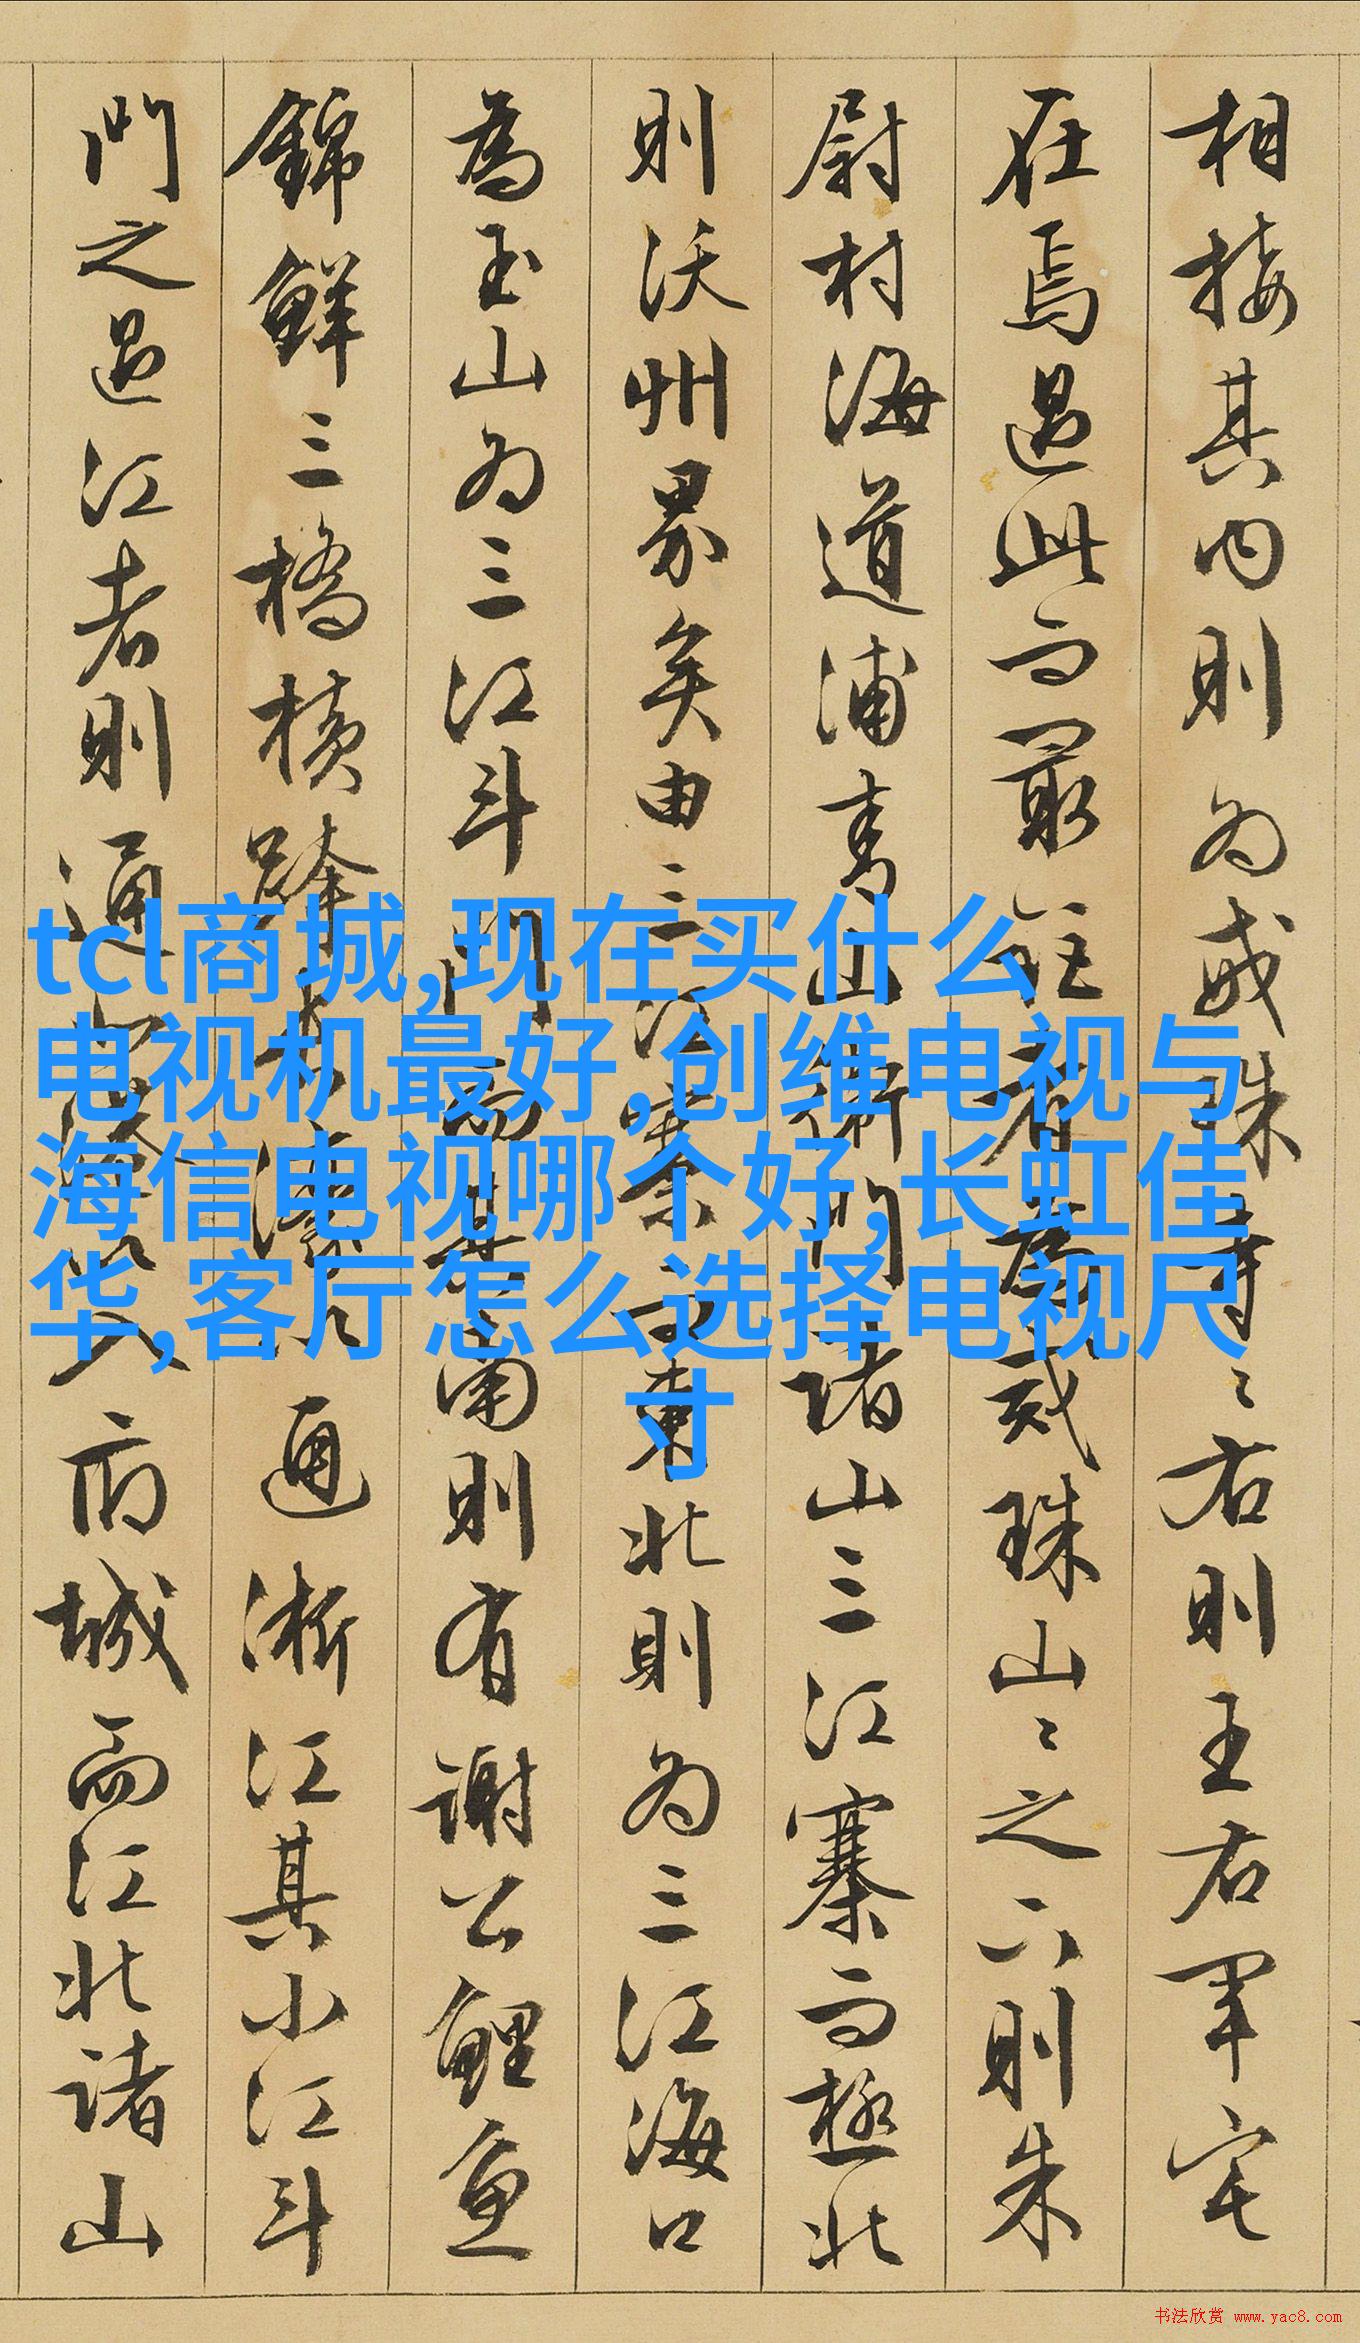 相接其内则为戒珠寺〻右则王右军宅
在焉过此而最近者为戒珠山〻之下则朱
尉村海道浦青山衙门诸山三江寨而极北
则沃州界矣由三江寨而东北则为三江海口
为玉山为三江斗门而其南则有谢公鲤鱼
锦鲜三桥横跨通浙江其小江斗
门之过江者则通府城而江北诸山
tcl商城,现在买什么
电视机最好,创维电视与
海信电视哪个好,长虹佳
华,客厅怎么选择电视尺
寸
书法欣赏 www.yac8.com